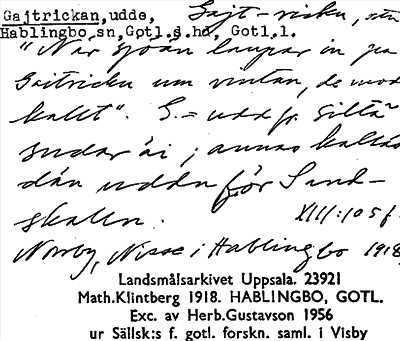 Gajtrickan, udde, Gajt-ricku,
Hablingbo sn, Gotl.s.hd, Gotl.l.
"När sjoån laupar in pa
Gaitricku um vintan, de
kallt". G. = udd fr.
sudar åi; annas kallas
dán uddn för Sand-
skallen. XIII:105f.
Norrby, Nisse i Hablingbo 1918
Landsmålsarkivet Uppsala. 23921
Math.Klintberg 1918. HABLINGBO, GOTL.
Exc. av Herb.Gustavson 1956
ur Sällsk:s f. gotl. forskn. saml. i Visby